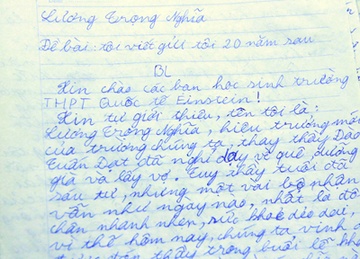 Lương Trọng Nghĩa
Đề bài: tôi viết gửi tôi 20 năm sau
BL
Xin chào các bạn học sinh trường
THPT Quốc tế Einstein!
Xin tự giới thiệu, tên tôi là:
Lương Trọng Nghĩa, hiệu trưởng mới
của trường chúng ta thay thầy Đào
Tuấn Đạt đã nghỉ dạy về quê, dưỡng
già và lấy vợ. Tuy thầy tuổi đã
sáu tư, nhưng một vài bộ phận
vẫn như ngày nào, nhất là đôi
chân nhanh nhẹn, sức khoẻ dẻo dai,
vì thế hôm nay, chúng ta vinh d
thầy trong buổi lễ kh